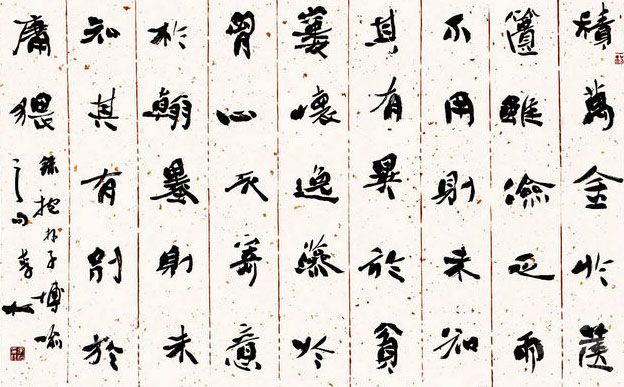 積萬金於篋
匱雖儉乏而
不用則未知
其有異於貧
窶懷逸藻於
胷心不寄意
於翰墨則未
知其有別於
庸猥
錄抱朴子博喻
之句